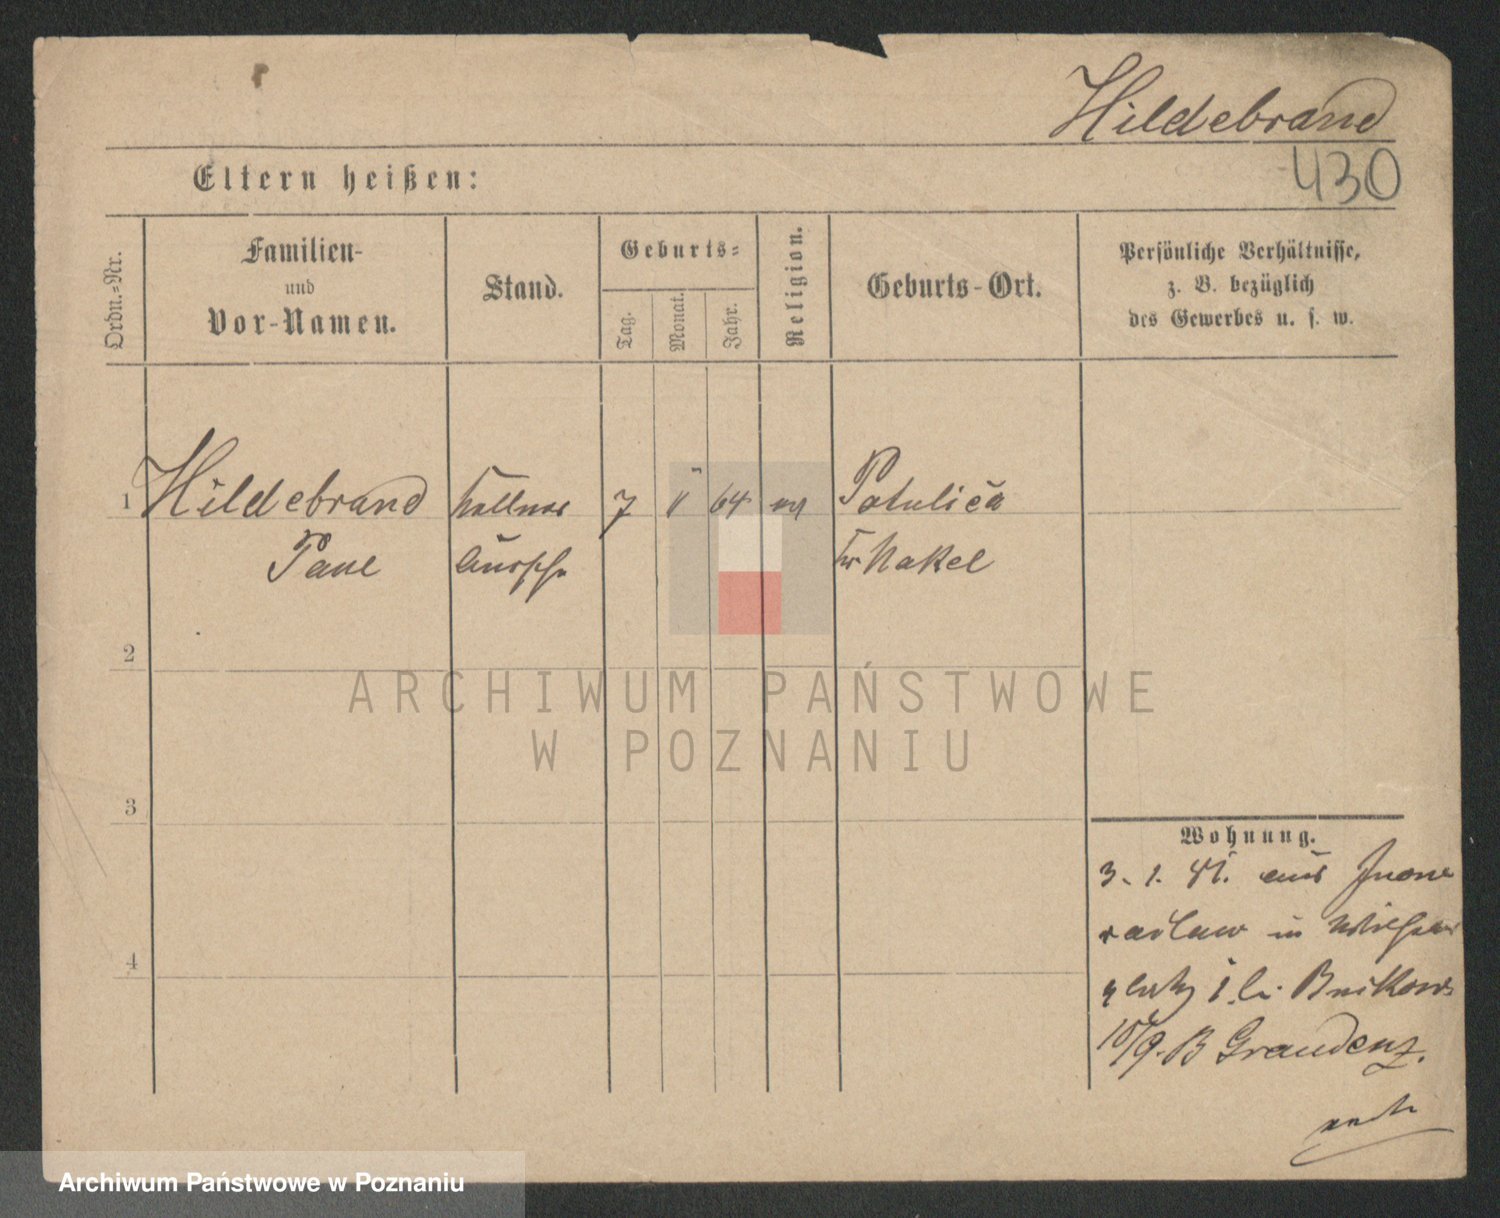 Hildebrand
430
Eltern heißen:
Ordn.-Nr.
Familien-
und
Vor-Namen.
Stand.
Geburts-
Tag.
Monat.
Jahr.
Religion.
Geburts-Ort.
Persönliche Verhältnisse,
z. B. bezüglich
des Gewerbes u. s. w.
1 Hildebrand Kellner 7 V 64 ev Potulice
Paul bursche Kr Nakel
2
ARCHIWUM PAŃSTWOWE
W POZNANIU
3
Wohnung.
3. 1. 81. aus Inow
raclaw in Wilhelm
platz 1. bei
10/9. B Graudenz.
4
Archiwum Państwowe w Poznaniu